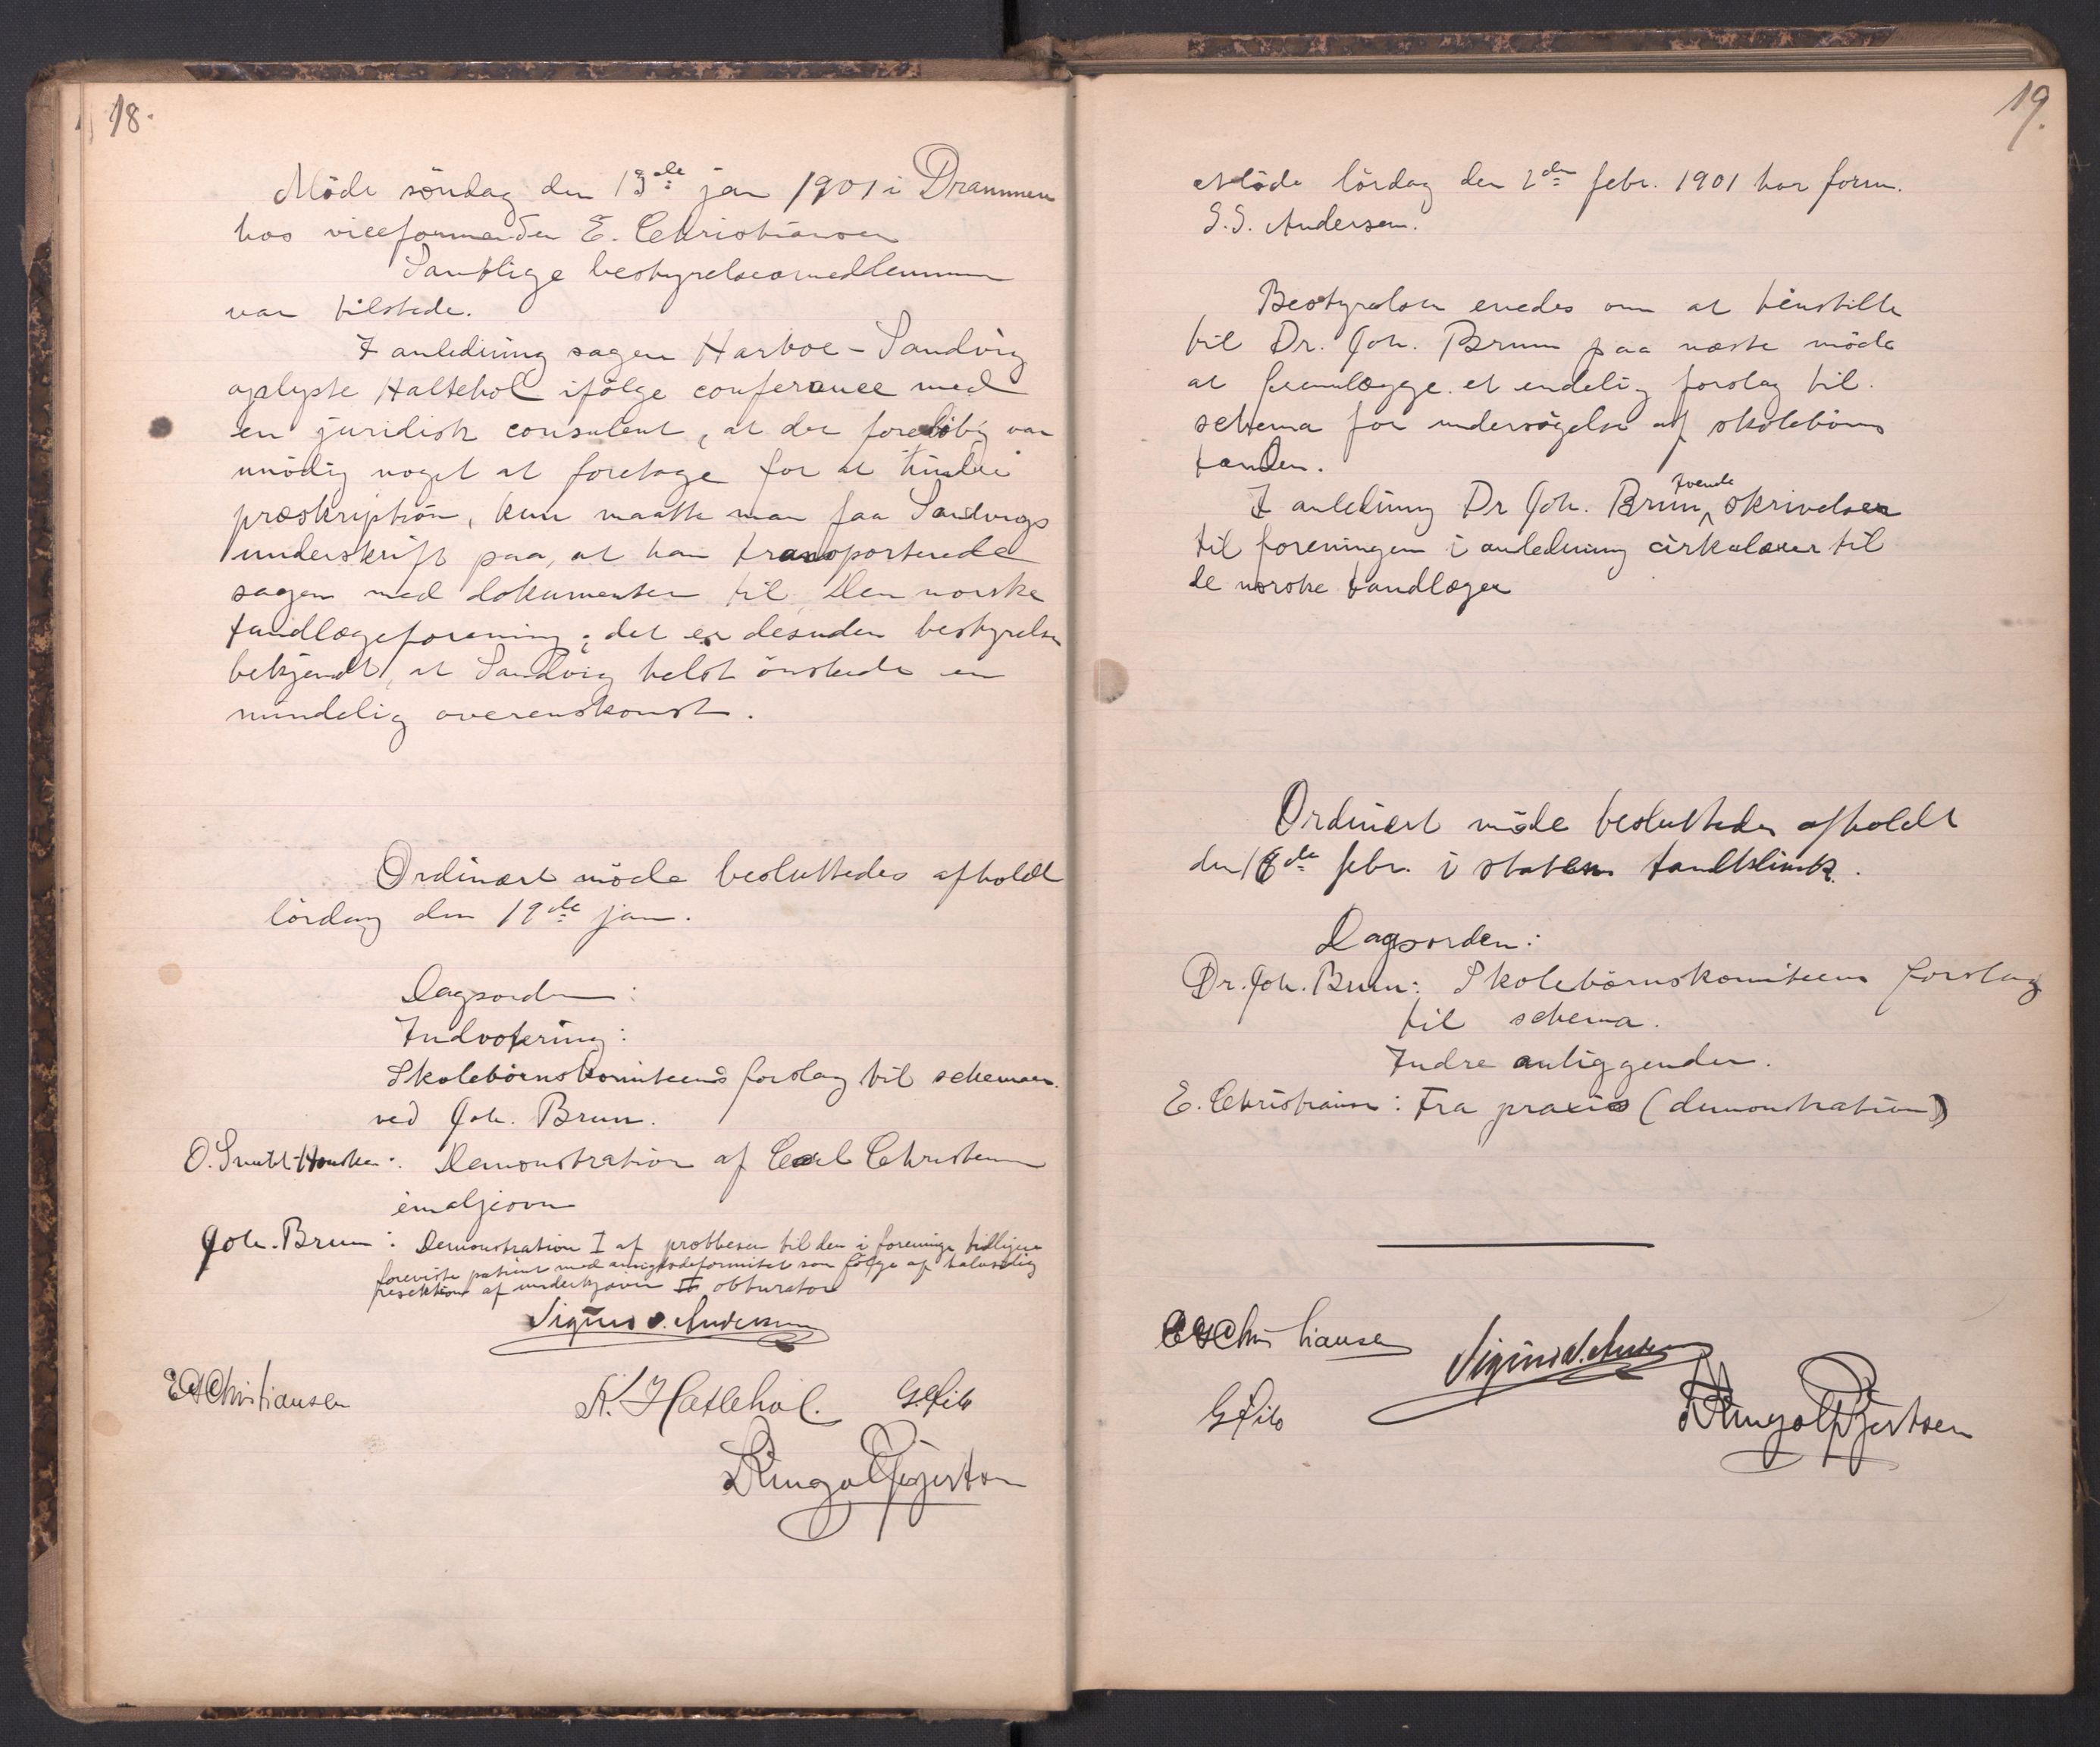 18.
Möde söndag den 13de jan 1901 i Drammen
hos viceformanden E. Christiansen
Samtlige bestyrelsesmedlemmer
var tilstede.
I anledning sagen Harboe - Sandvig
oplyste Hattehol ifölge conferance med
en juridisk consulent, at der forelöbig var
unödig noget at foretage for at hindre
præskription, kun maatte man faa Sandvigs
underskrift paa, at han transporterede
sagen med dokumenter til Den norske
tandlægeforening; det er desuden bestyrelsen
bekjendt, at Sandvig helst önskede en
mindelig overenskomst.
Ordinært möde besluttedes afholdt
lördag den 19de jan.
Dagsorden:
Indvotering:
Skolebörnskomiteens forslag til schemaer
ved Joh. Brun.
O. Smitt-Housken: Demonstration af Carl Christensen
emaljeovn
Joh. Brun: Demonstration I af prothesen til den i foreninge tidligere
foreviste patient med ansigtsdeformitet som fölge af halvsidig
resektion af underkjæven II obturator
Sigurd S. Andersen
E Christiansen
K. Hattehol. G. Fito
Ringvold Gjertsen
19.
Möde lördag den 2den febr. 1901 hos form.
S.S. Andersen.
Bestyrelsen enedes om at henstille
til Dr. Joh. Brun paa næste möde
at fremlægge et endelig forslag til
schema for undersögelse af skolebörns
tænder.
tvende
I anledning Dr Joh. Brun skrivelser
til foreningen i anledning cirkulærer til
de norske tandlæger
Ordinært möde besluttedes afholdt
den 16de febr. i statens tandklinik.
Dagsorden:
Dr. Joh. Brun: Skolebörnskomiteens forslag
til schema.
Indre anliggender.
E. Christiansen: Fra praxis (demonstration)
E Christiansen
Sigurd S. Andersen
G Fito
Ringvold Gjertsen